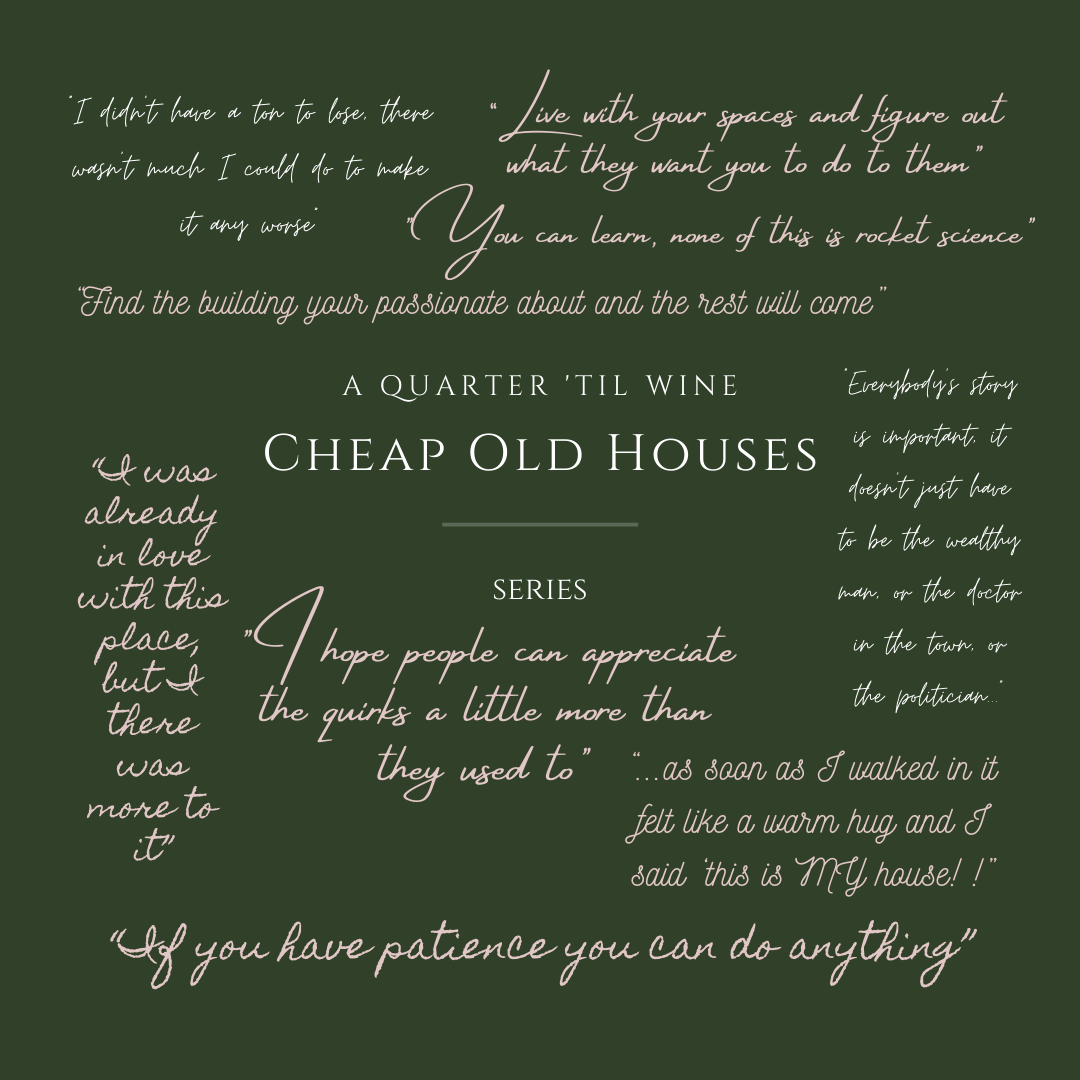 "I didn't have a ton to lose, there
wasn't much I could do to make
it any worse"
" Live with your spaces and figure out
what they want you to do to them"
"You can learn, none of this is rocket science"
"Find the building your passionate about and the rest will come"
A QUARTER 'TIL WINE
CHEAP OLD HOUSES
SERIES
"Everybody's story
is important, it
doesn't just have
to be the wealthy
man, or the doctor
in the town, or
the politician..."
"I was
already
in love
with this
place,
but I
there
was
more to
it"
"I hope people can appreciate
the quirks a little more than
they used to"
"...as soon as I walked in it
felt like a warm hug and I
said 'this is MY house! !"
"If you have patience you can do anything"